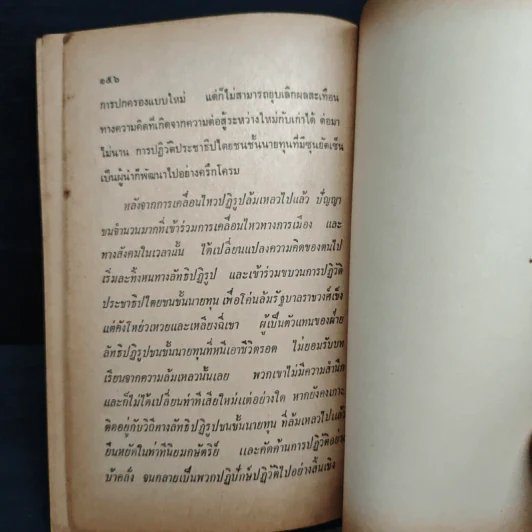 ๑๕๖
การปกครองแบบใหม่ แต่ก็ไม่สามารถยุบเลิกผลสะเทือน
ทางความคิดที่เกิดจากความต่อสู้ระหว่างใหม่กับเก่าได้ ต่อมา
ไม่นาน การปฏิวัติประชาธิปไตยชนชั้นนายทุนที่มีซุนยัดเซ็น
เป็นผู้นำก็พัฒนาไปอย่างครึกโครม
หลังจากการเคลื่อนไหวปฏิรูปล้มเหลวไปแล้ว ปัญญา
ชนจำนวนมากที่เข้าร่วมการเคลื่อนไหวทางการเมือง และ
ทางสังคมในเวลานั้น ได้เปลี่ยนแปลงความคิดของตนไป
เริ่มละทิ้งหนทางลัทธิปฏิรูป และเข้าร่วมขบวนการปฏิวัติ
ประชาธิปไตยชนชั้นนายทุน เพื่อโค่นล้มรัฐบาลราชวงศ์เช็ง
แต่คังโหย่วเหวยและเหลียงฉี่เชา ผู้เป็นตัวแทนของฝ่าย
ลัทธิปฏิรูปชนชั้นนายทุนที่หนีเอาชีวิตรอด ไม่ยอมรับบท
เรียนจากความล้มเหลวนั้นเลย พวกเขาไม่มีความสำนึก
และก็ไม่ได้เปลี่ยนท่าทีเสียใหม่แต่อย่างใด หากยังคงเกาะ
ติดอยู่กับวิถีทางลัทธิปฏิรูปชนชั้นนายทุน ที่ล้มเหลวไปแล้ว
ยืนหยัดในท่าทีนิยมกษัตริย์ และคัดค้านการปฏิวัติอย่าง
บ้าคลั่ง จนกลายเป็นพวกปฏิปักษ์ปฏิวัติไปอย่างสิ้นเชิง